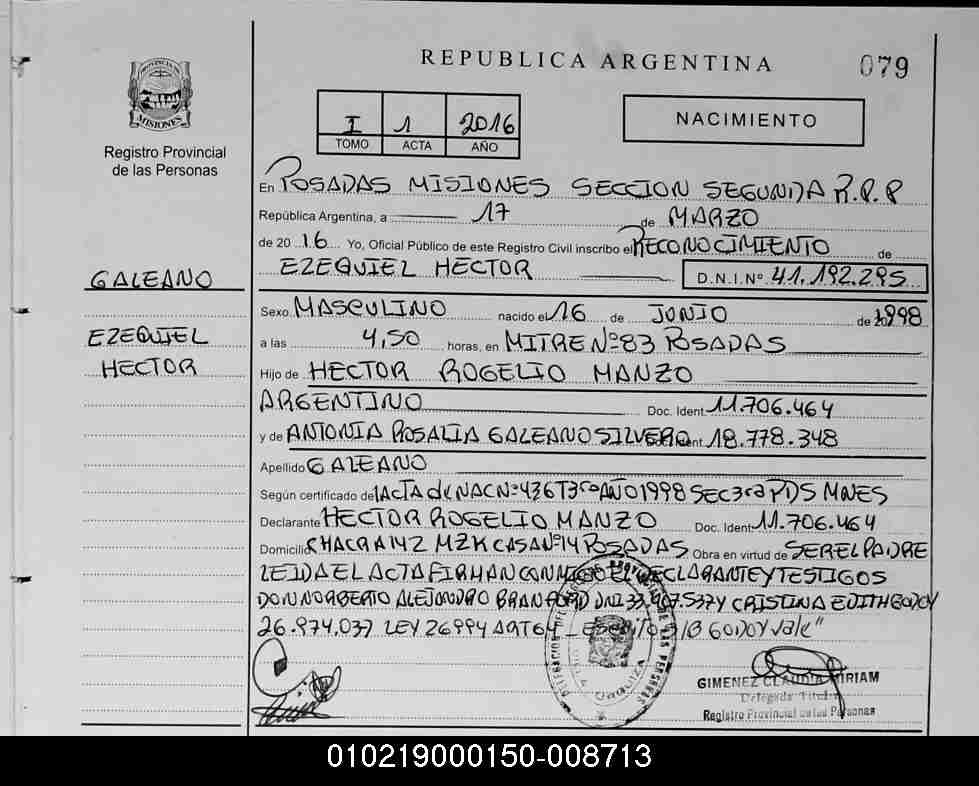 REPUBLICA ARGENTINA
079
PROVINCIA DE
MISIONES
Registro Provincial
de las Personas
I 1 2016
TOMO ACTA AÑO
NACIMIENTO
En POSADAS MISIONES SECCION SEGUNDA R.P.P
República Argentina, a 17 de MARZO
de 20 16 Yo, Oficial Público de este Registro Civil inscribo el RECONOCIMIENTO de
EZEQUIEL HECTOR D.N.I.Nº 41.192.295
GALEANO
EZEQUIEL
HECTOR
Sexo MASCULINO nacido el 16 de JUNIO de 1998
a las 4,50 horas, en MITRE Nº 83 POSADAS
Hijo de HECTOR ROGELIO MANZO
ARGENTINO Doc. Ident 11.706.464
y de ANTONIA ROSALIA GALEANO SILVERO 18.778.348
Apellido GALEANO
Según certificado de ACTA de NAC Nº 436 T3ro AÑO 1998 SEC 3ra PDS MNES
Declarante HECTOR ROGELIO MANZO Doc. Ident 11.706.464
Domicilio CHACRA 142 MZ K CASA Nº 14 POSADAS Obra en virtud de SER EL PADRE
LEIDA EL ACTA FIRMAN CONMIGO EL DECLARANTE Y TESTIGOS
DON NORBERTO ALEJANDRO DNI Y CRISTINA EDITH GODOY
26.974.037 LEY 26994 GODOY Vale"
GIMENEZ CLAUDIA MIRIAM
Delegada Titular
Registro Provincial de las Personas
010219000150-008713